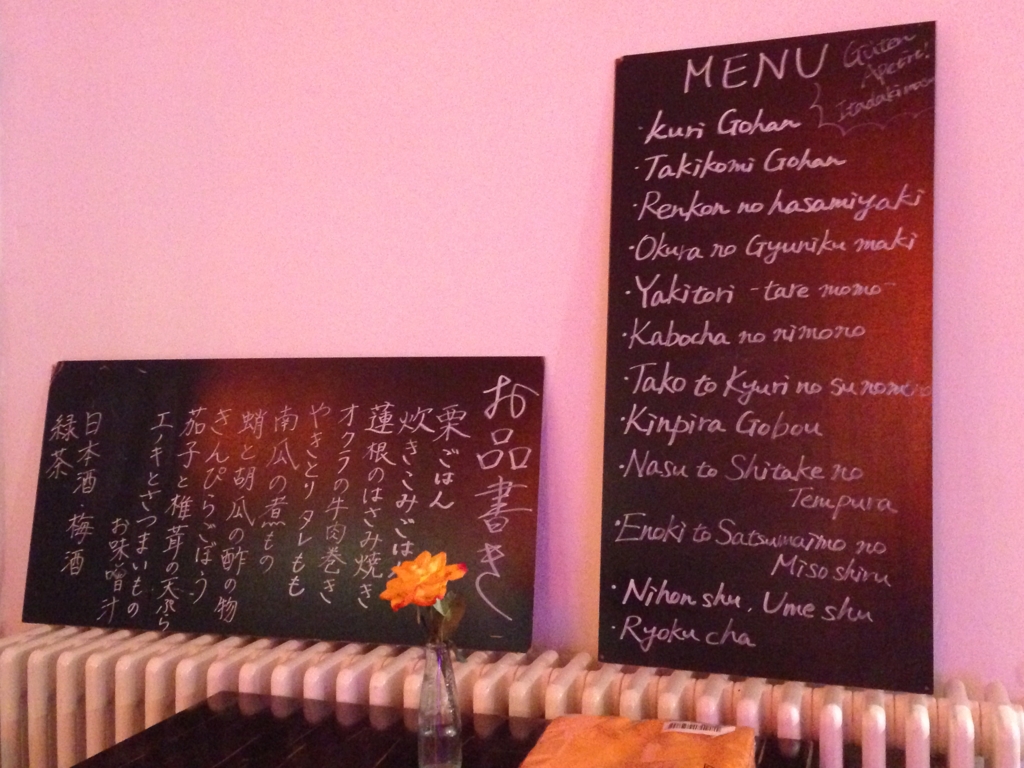 お品書き
栗ごはん
炊きこみごは
蓮根のはさみ焼き
オクラの牛肉巻き
やきとり タレもも
南瓜の煮もの
蛸と胡瓜の酢の物
きんぴらごぼう
茄子と椎茸の天ぷら
エノキとさつまいもの
お味噌汁
日本酒 梅酒
緑茶
MENU
Guten
Apetit!
Itadakimasu
・Kuri Gohan
・Takikomi Gohan
・Renkon no hasamiyaki
・Okura no Gyuniku maki
・Yakitori -tare momo-
・Kabocha no nimono
・Tako to Kyuri no sunomono
・Kinpira Gobou
・Nasu to Shitake no
Tempura
・Enoki to Satsumaimo no
Miso shiru
・Nihon shu, Ume shu
・Ryoku cha